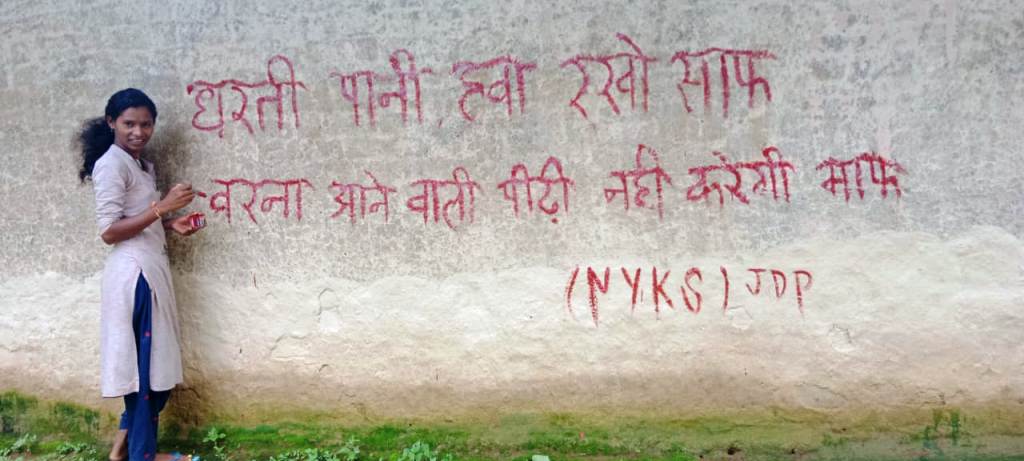 धरती पानी, हवा रखो साफ
वरना आने वाली पीढ़ी नही करेगी माफ
(NYKS) JDP